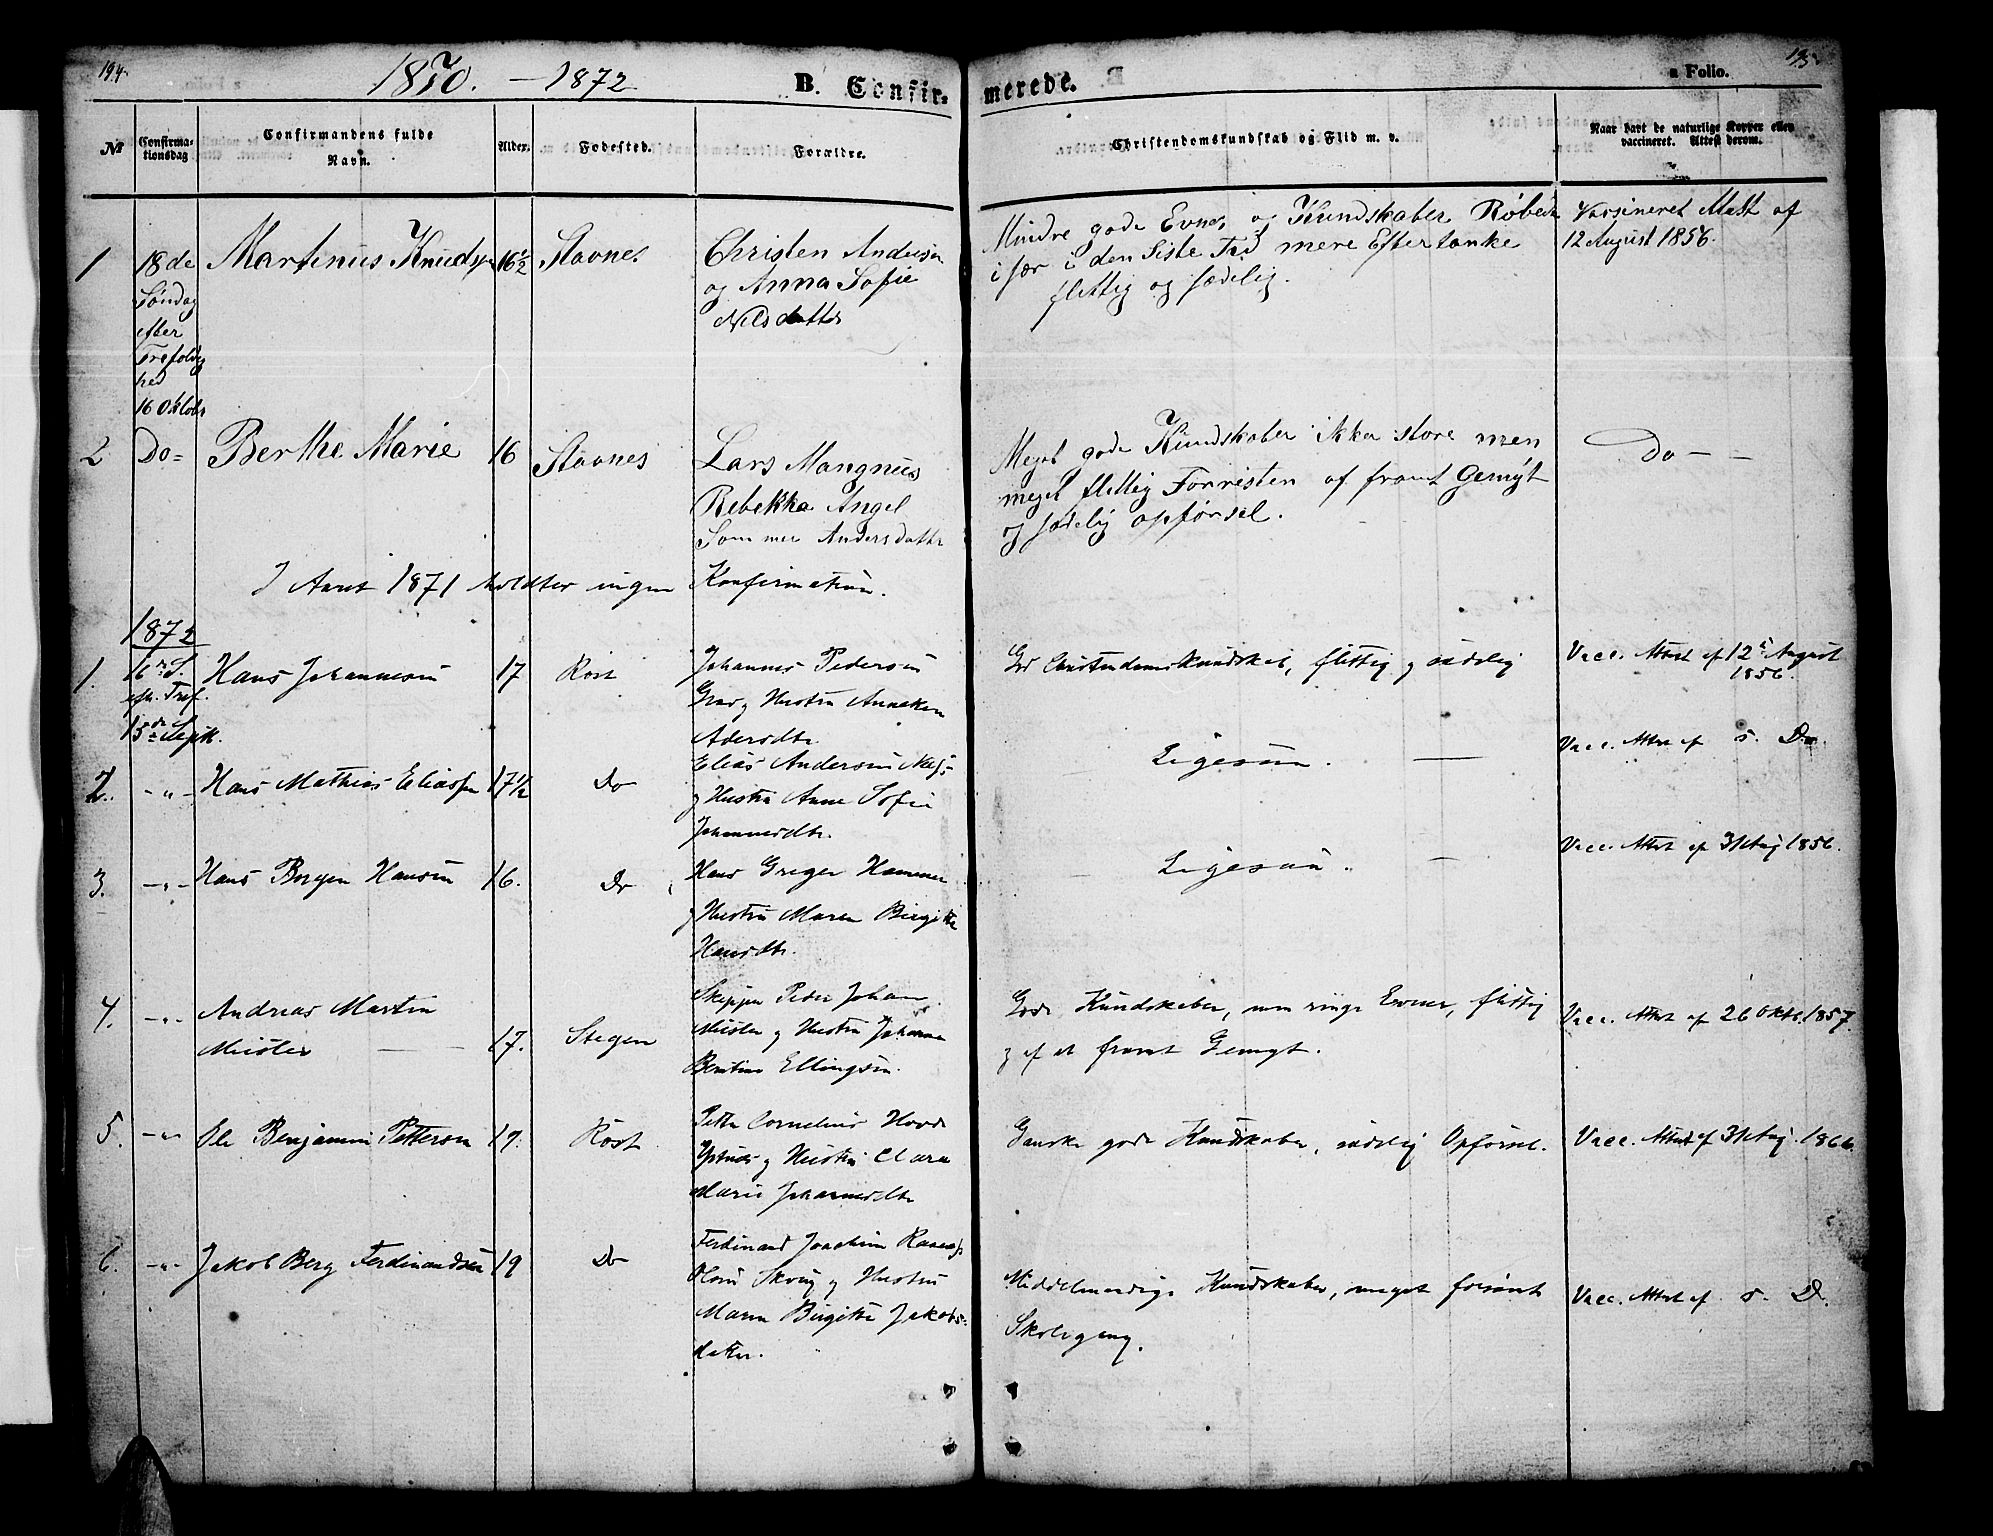 194
1870. – 1872
B. Confir-
merede.
195
a Folio.
№
Confirma-
tionsdag
Confirmandens fulde
Navn.
Alder.
Fødested.
Forældre.
Christendomskundskab og Flid m. v.
Naar havt de naturlige Kopper eller
vaccineret. Attest derom.
1
18de
Søndag
efter
Trefoldig
hed
16 Oktobr
Martinus Knudsen
16½
Stavnes
Christen Andersen
og Anna Sofie
Nilsdatter
Mindre gode Evner og Kundskaber
især i den Siste Tid mere Eftertanke
flittig og sædelig.
Vacsineret Attest af
12 August 1856.
2
Do=
Berthe Marie
16
Stavnes
Lars Mangnus
Rebekka Angel
Sommer Andersdatter
Meget gode Kundskaber ikke store men
meget flittig Forresten af fromt Gemyt
og sædelig opførsel.
Do – –
I Aaret 1871 holdtes ingen Konfirmation.
1872
1.
16de S.
eft. Tref.
15de Septb.
Hans Johannesen
17
Røst
Johannes Pedersen
og Hustru Anneken
Adersdtr
God Christendomskundskab, flittig og sædelig
Vacc. Attest af 12te August
1856.
2.
–"–
Hans Mathias Eliassen
17½
Do
Elias Andersen
og Hustru Anne Sofie
Johannesdtr.
Ligesaa. —
Vacc. Attest af s. D.
3.
–"–
Hans Borgen Hansen
16.
Do
Hans Greger Hammer
og Hustru Maren Birgitte
Hansdtr.
Ligesaa. —
Vacc. Attest af 31 Aug 1856.
4.
–"–
Andreas Martin
Meisler
17.
Stegen
Skipper Peder Johan
Meisler og Hustru Johanna
Bentine Ellingsen.
Gode Kundskaber, men ringe Evner, flittig
og af et fromt Gemyt.
Vacc. Attest af 26 Oktb. 1857.
5.
–"–
Ole Benjamin Pettersen
19.
Røst
Petter Cornelius
og Hustru Clara
Marie Johannesdtr
Ganske gode Kundskaber, sædelig Opførsel.
Vacc. Attest af 31 Aug. 1866.
6.
–"–
Jakob Berg Ferdinandsen
19
Do
Ferdinand Joachim
og Hustru
Maren Birgitte Jakobs-
datter.
Middelmaadige Kundskaber, meget forsømt
Skolegang.
Vacc. Attest af s. D.